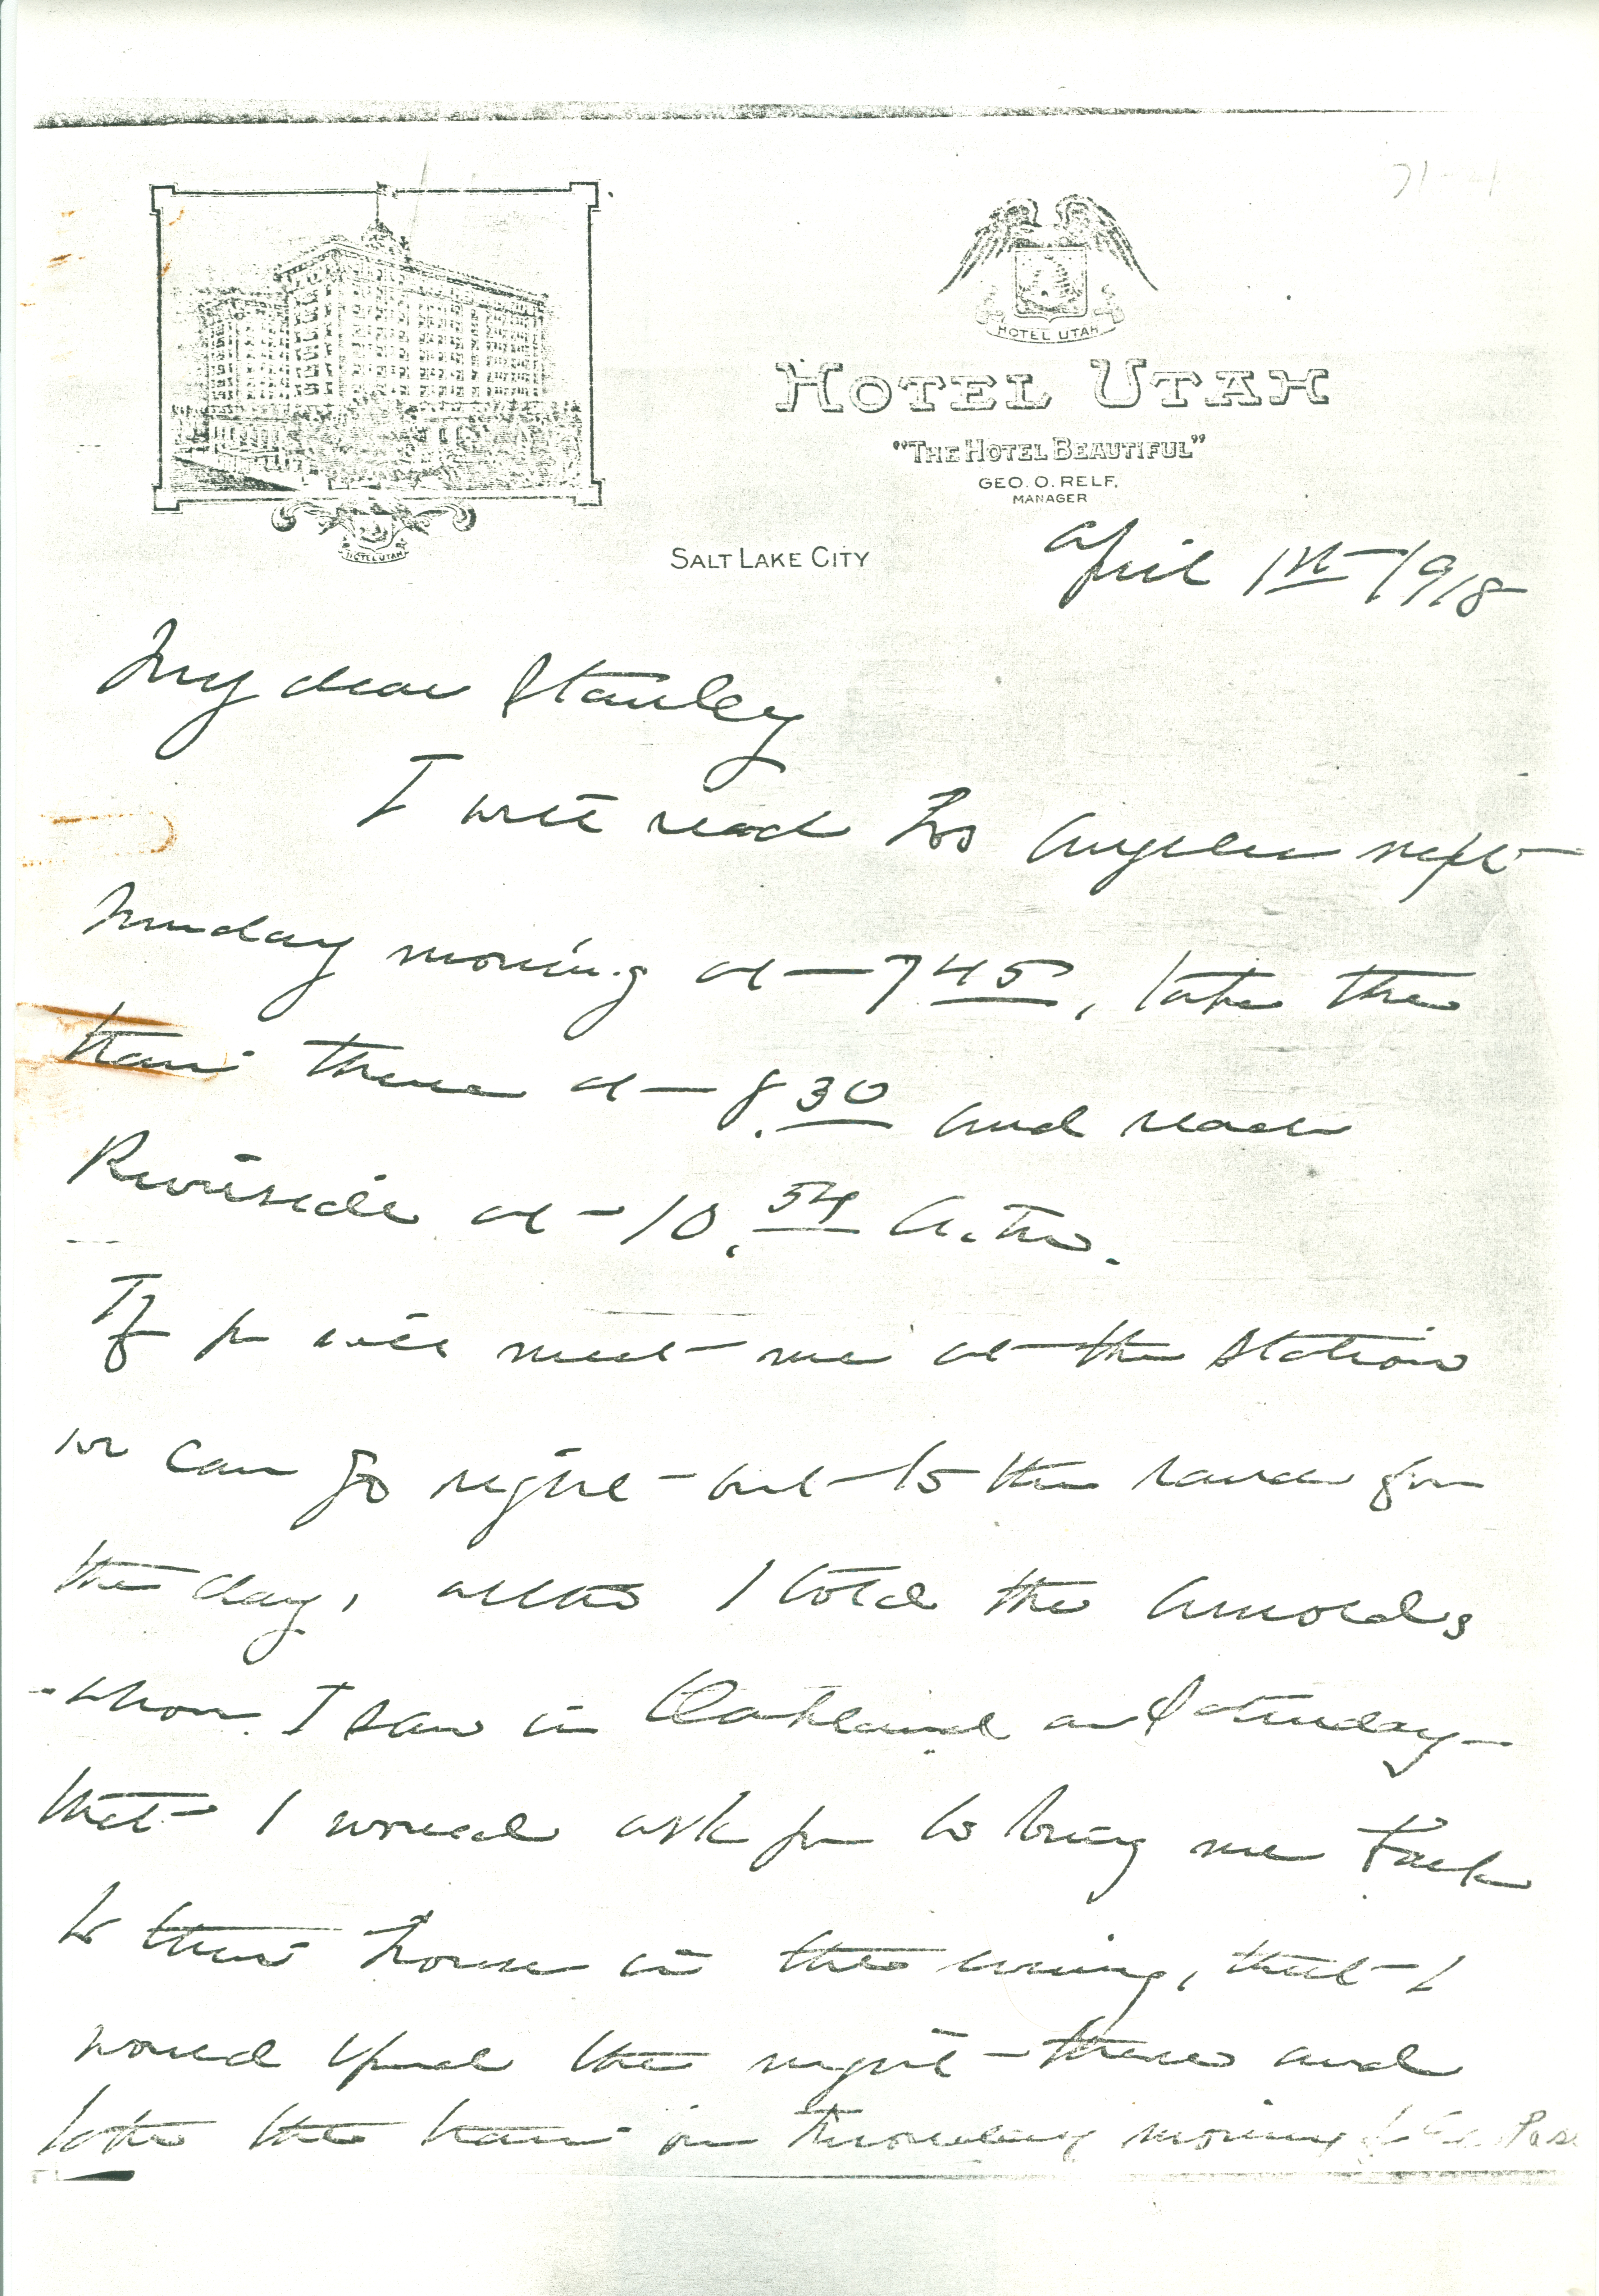 HOTEL UTAH
HOTEL UTAH
"THE HOTEL BEAUTIFUL"
GEO. O. RELF,
MANAGER
HOTEL UTAH
SALT LAKE CITY
April 1st 1918
My dear Stanley
I will reach Los Angeles next
Sunday morning at 7 45, take the
train there at 8.30 and reach
Riverside at 10.54 A.M.
If you will meet me at the station
we can go right out to the ranch for
the day, altho I told the Arnolds
whom I saw in Oakland on Saturday
that I would ask you to bring me back
to their house in the evening, that I
would spend the night there and
take the train on Monday morning